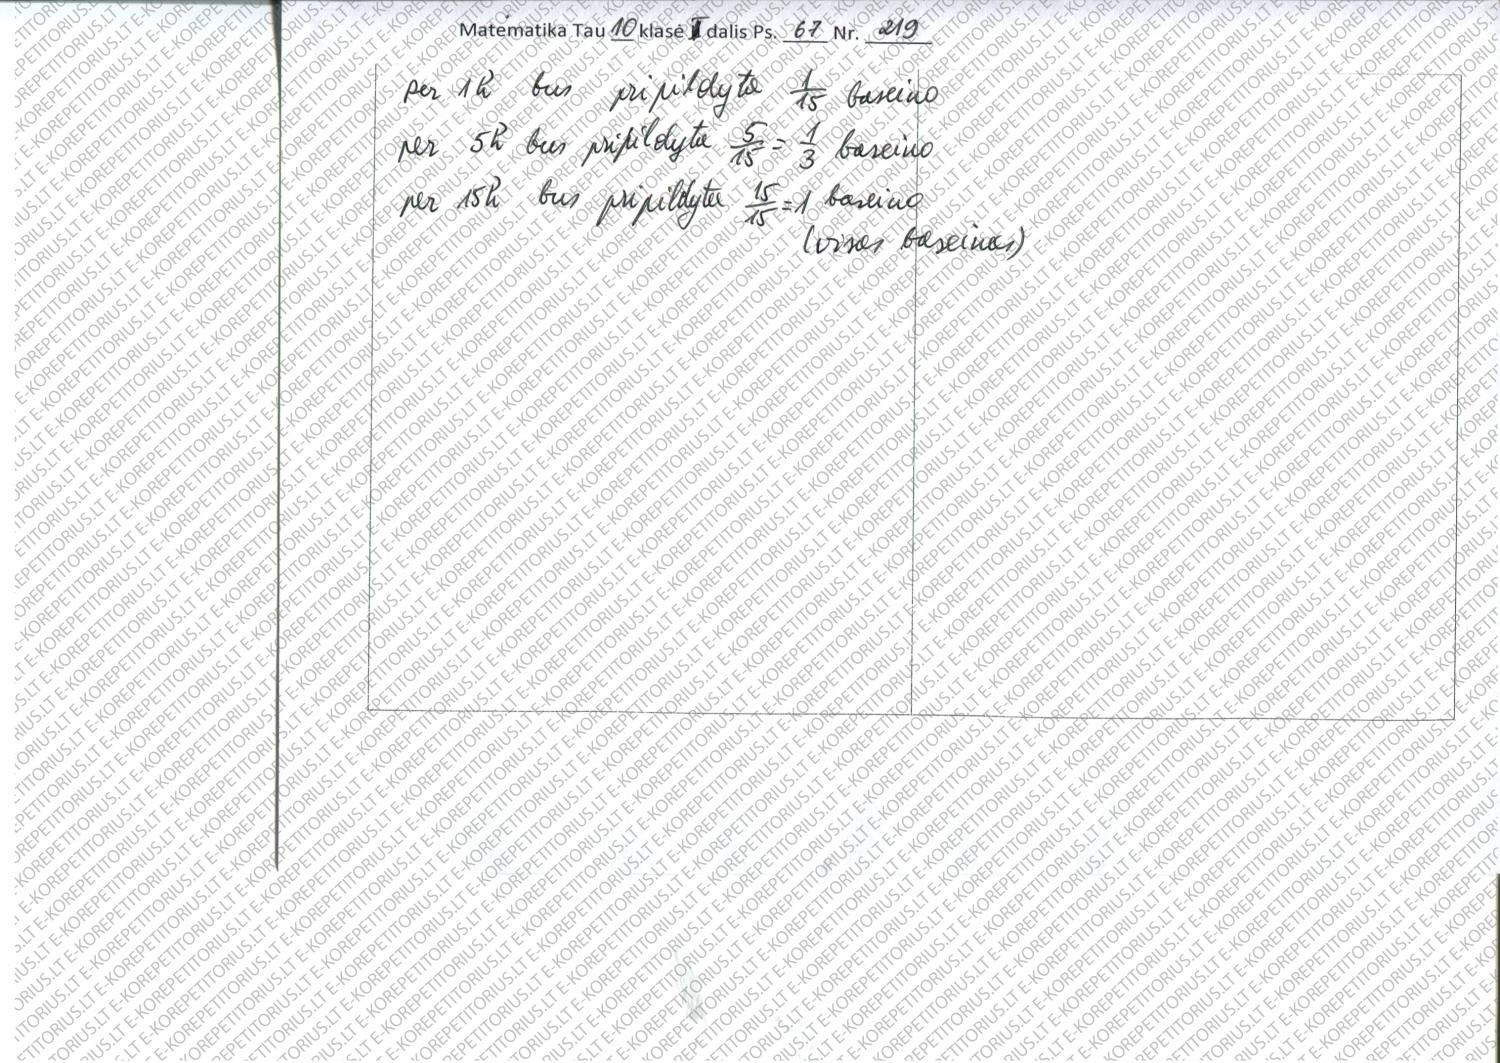 Matematika Tau 10 klasė I dalis Ps. 67 Nr. 219
per 1h bus pripildyta 1/15 baseino
per 5h bus pripildyta 5/15 = 1/3 baseino
per 15h bus pripildyta 15/15 = 1 baseino
(visas baseinas)